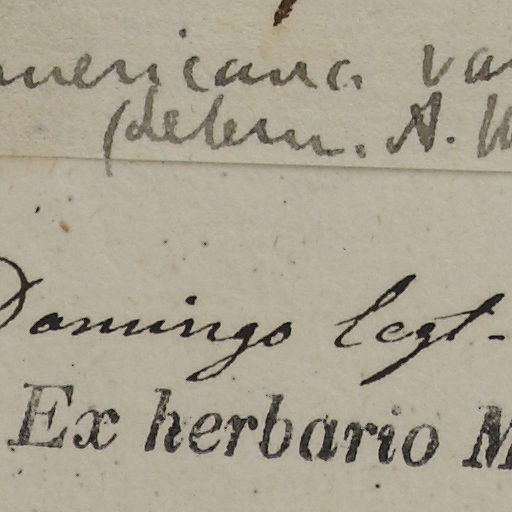 americana va
(determ. A. W
Domingo legt-
Ex herbario M